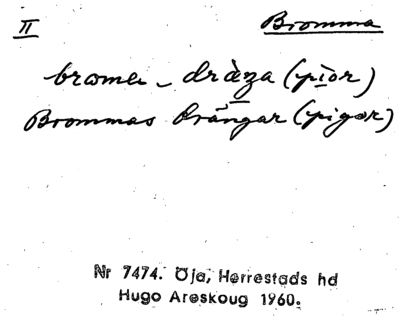 II
Bromma
bromer - dràza (pìor)
Brommas drängar (pigor)
Nr 7474. Öja, Herrestads hd
Hugo Areskoug 1960.